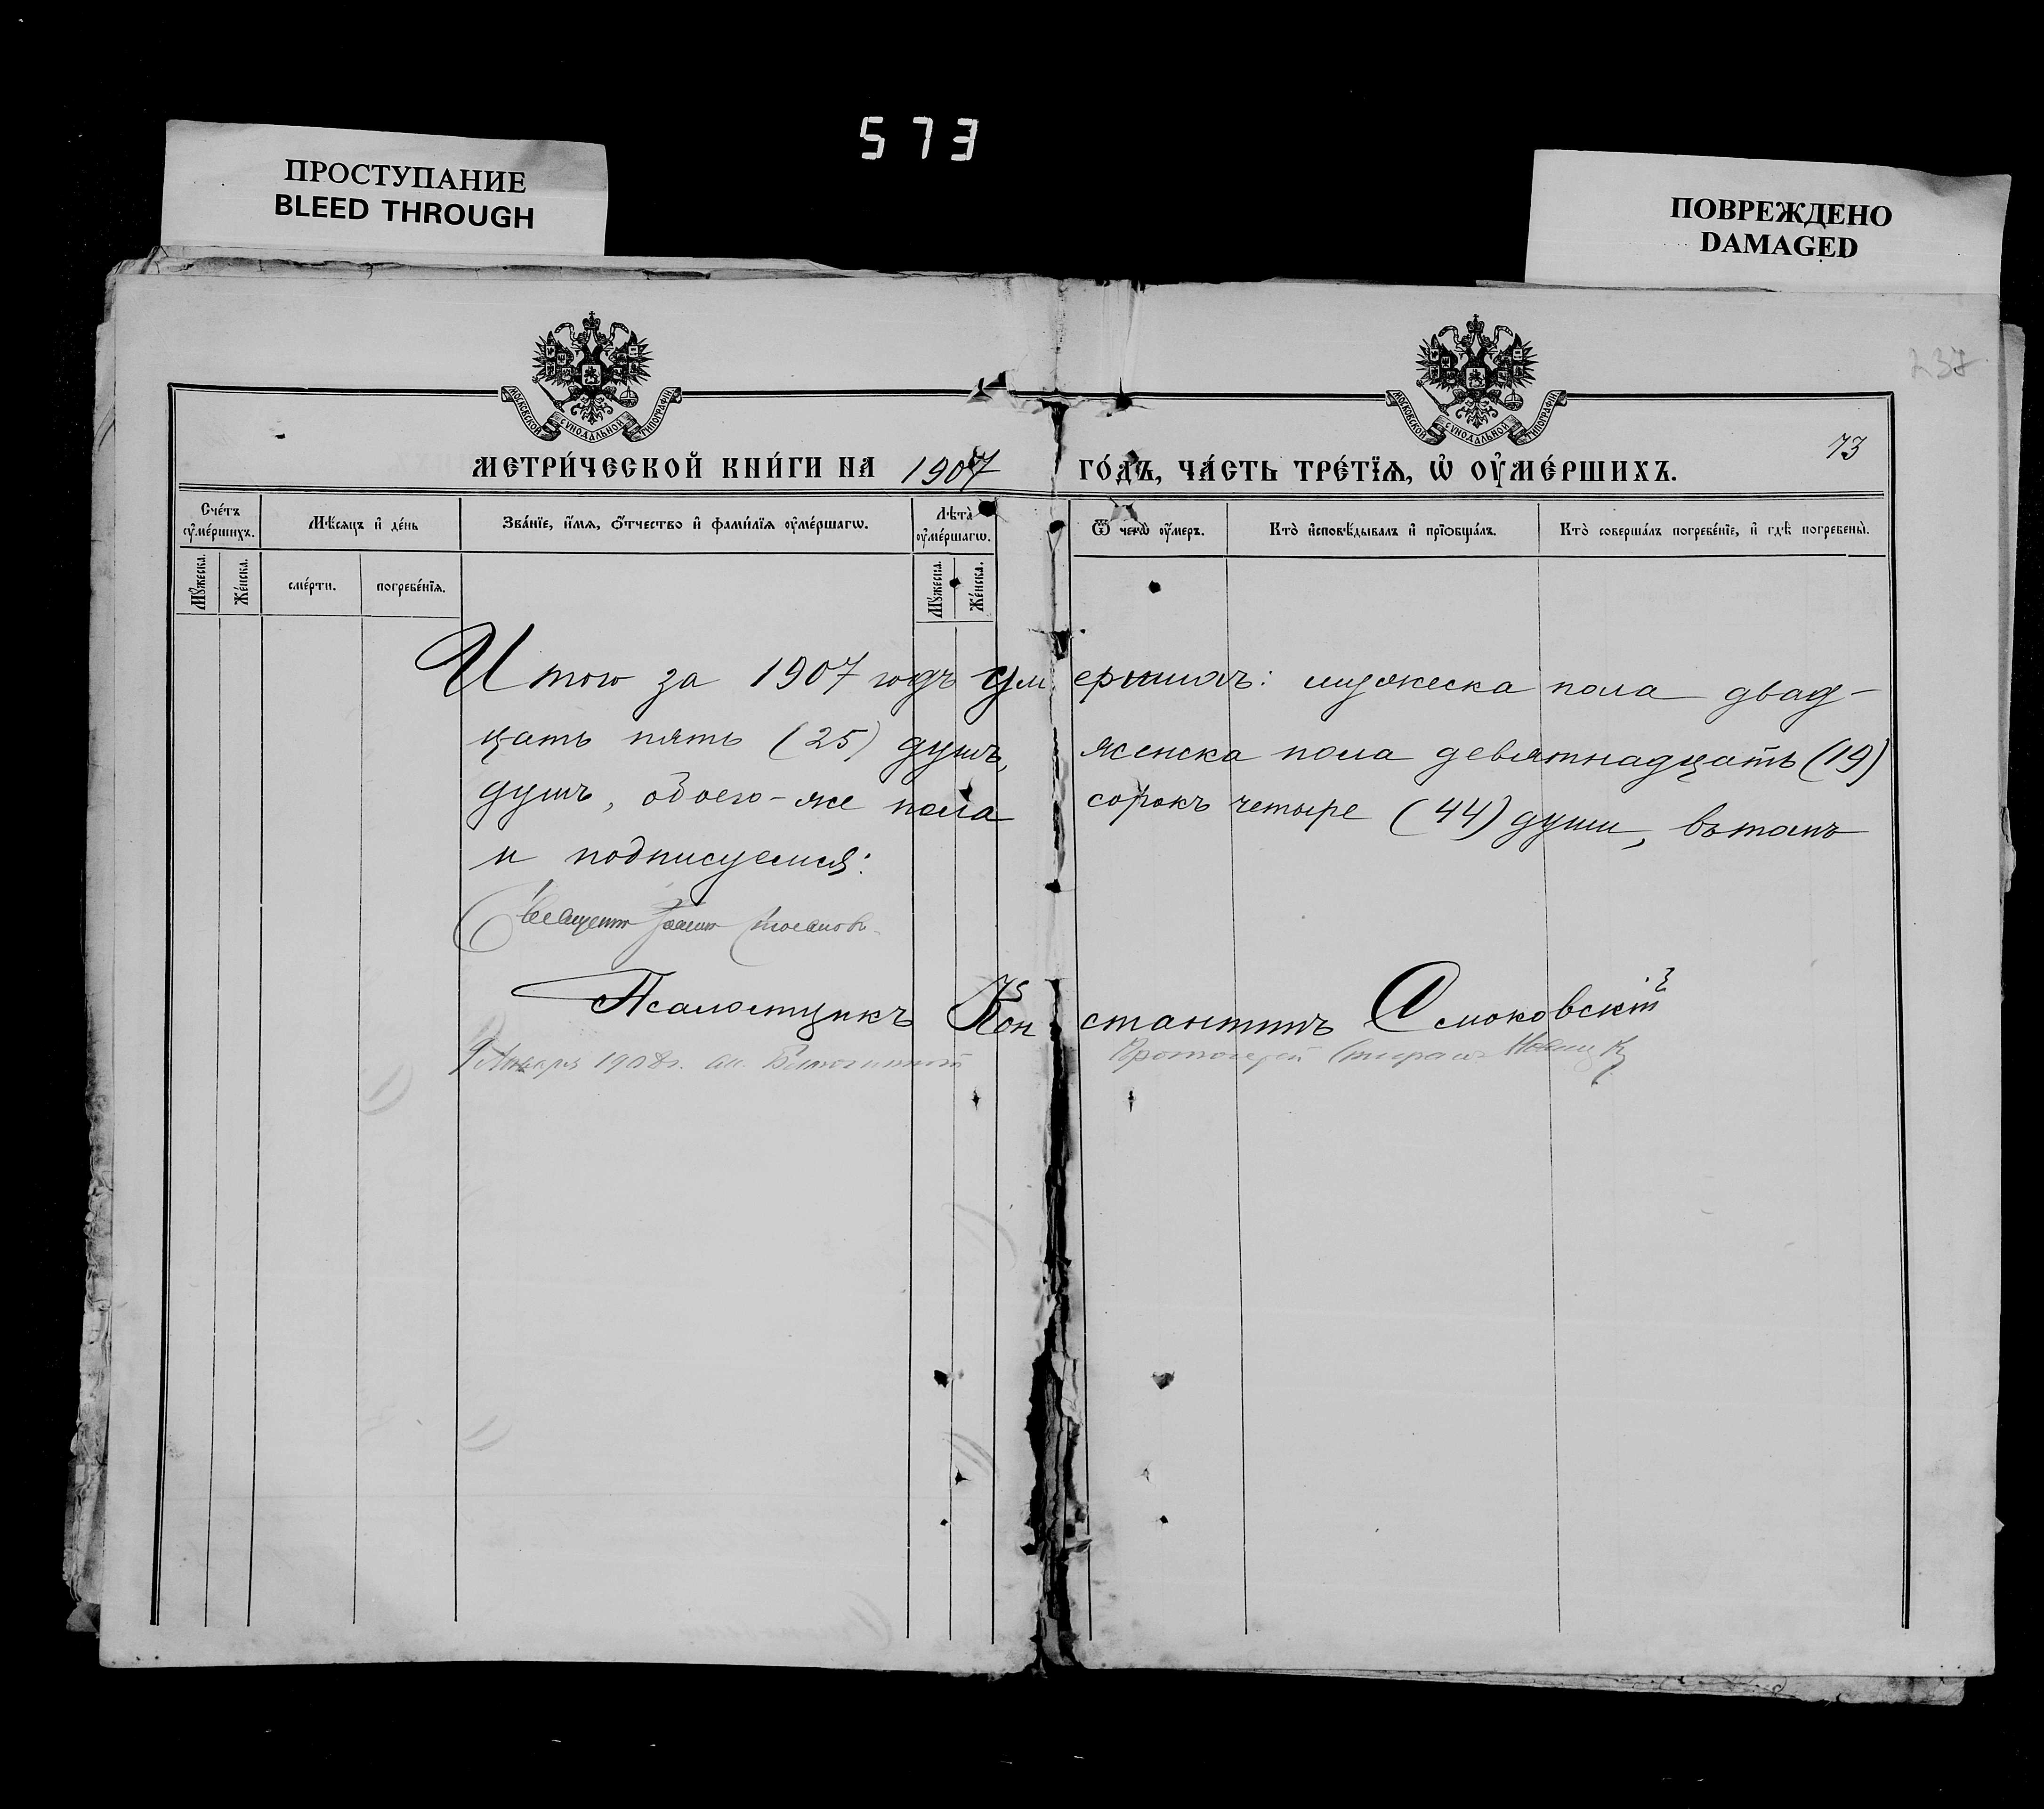 573
ПРОСТУПАНИЕ
BLEED THROUGH
ПОВРЕЖДЕНО
DAMAGED
МОСКОВСКОЙ СѴНОДАЛЬНОЙ ТИПОГРАФІИ
МОСКОВСКОЙ СѴНОДАЛЬНОЙ ТИПОГРАФІИ
73
МЕТРИ́ЧЕСКОЙ КНИ́ГИ НА 1907 ГО́ДЪ, ЧА́СТЬ ТРЕ́ТЇѦ, Ѡ҆ ОУ҆МЕ́РШИХЪ.
Сче́тъ оу҆ме́ршихъ.
Мꙋ́жеска.
Же́нска.
Мѣ́сяцъ и҆ де́нь
сме́рти.
погребе́нїѧ.
Зва́нїе, и҆́мѧ, ѻ҆́тчество и҆ фами́лїѧ оу҆ме́ршагѡ.
Лѣта̀ оу҆ме́ршагѡ.
Мꙋ́жеска.
Же́нска.
Ѿ чегѡ̀ оу҆́меръ.
Кто̀ и҆сповѣ́дывалъ и҆ прїѻбща́лъ.
Кто̀ соверша́лъ погребе́нїе, и҆ гдѣ̀ погребены̀.
Итого за 1907 годъ умершихъ: мужеска пола двад-
цать пять (25) душъ, женска пола девятнадцать (19)
душъ, обоего-же пола сорокъ четыре (44) души, въ томъ
и подписуемся:
Священникъ Іоаннъ
Псаломщикъ Константинъ Осмоковскій
Января 1908 г. Протоіерей